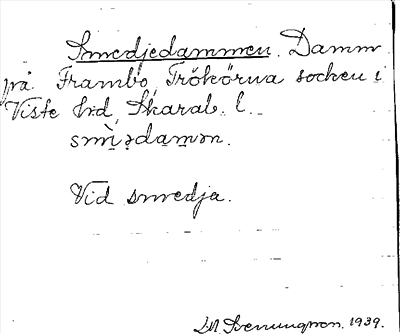 Smedjedammen. Damm
på Frambo, Trökörna socken i
Viste h:d, Skarab. l.
smɩ̀ ̣ədamən.
Vid smedja.
1939.